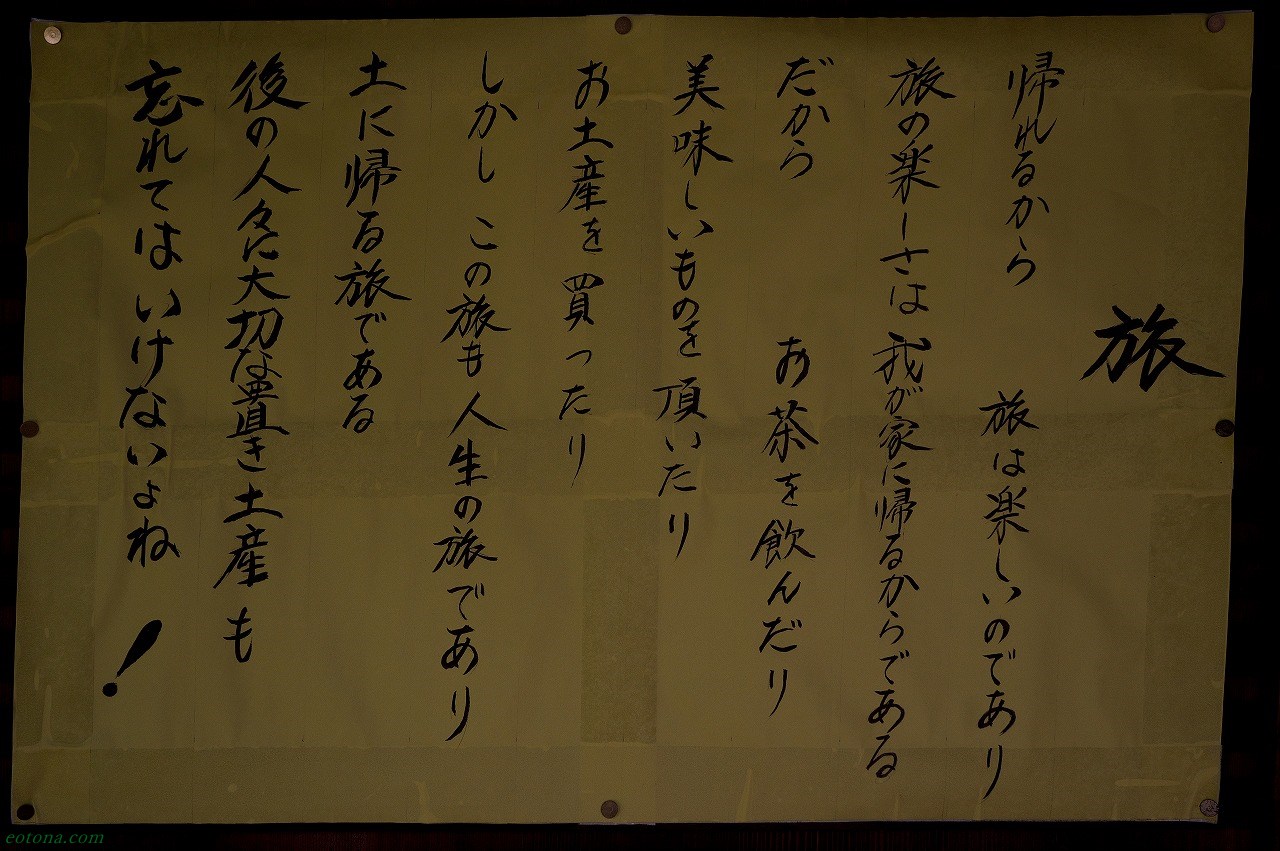 旅
帰れるから 旅は楽しいのであり
旅の楽しさは我が家に帰るからである
だから お茶を飲んだり
美味しいものを頂いたり
お土産を買ったり
しかし この旅も人生の旅であり
土に帰る旅である
後の人々に大切な置き土産も
忘れてはいけないよね!
eotona.com